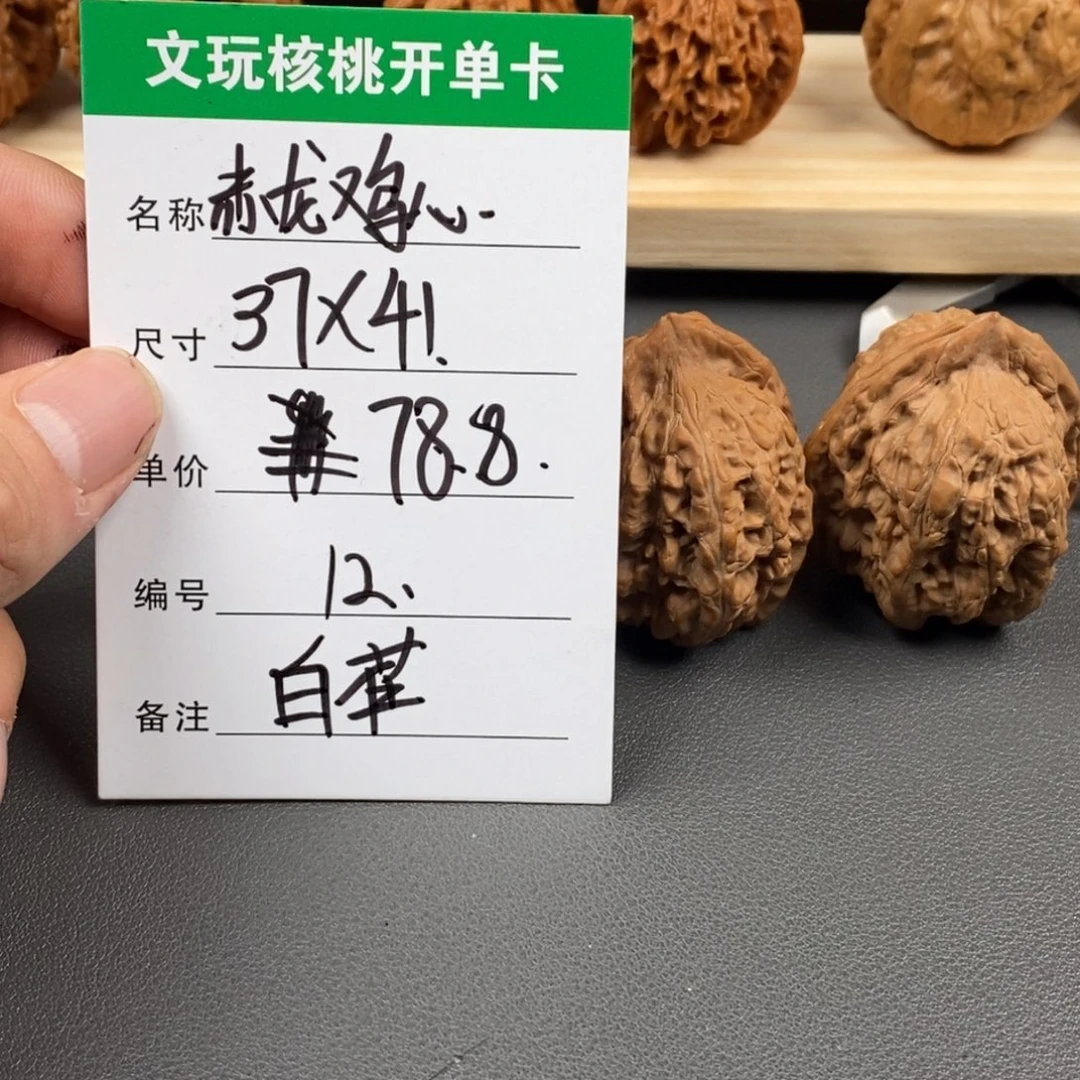 文玩核桃开单卡
名称 赤龙鸡心.
尺寸 37X41.
单价 78.8.
编号 12.
备注 白茬